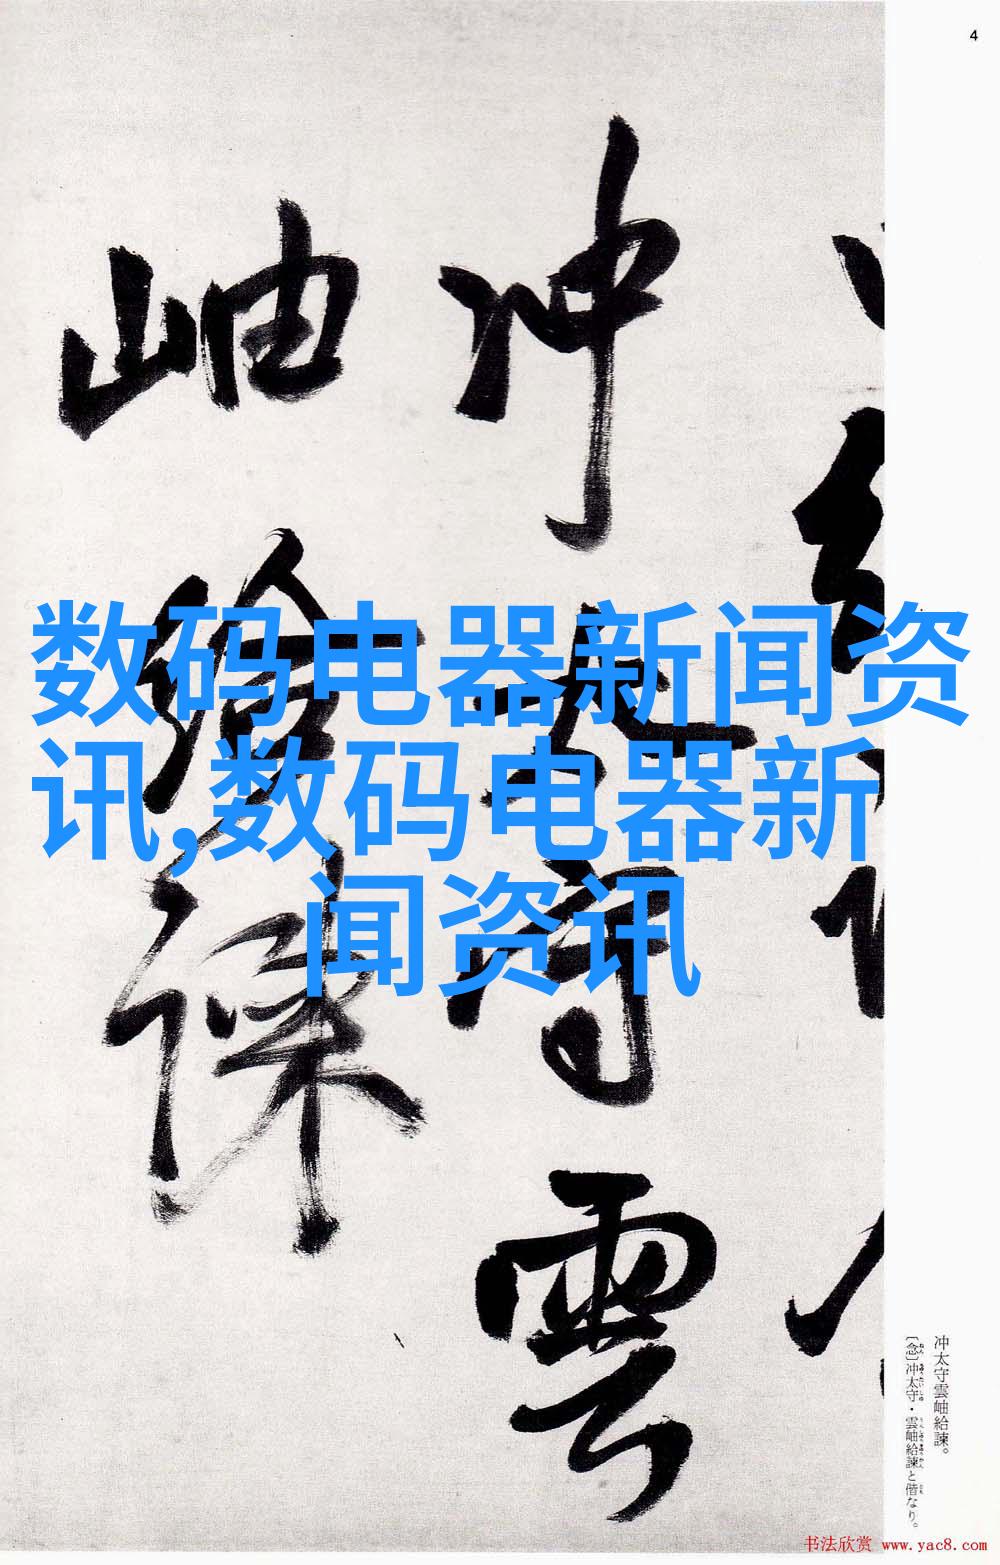 4
冲太守雲
岫給諫
数码电器新闻资
讯,数码电器新
闻资讯
冲太守雲岫給諫。
〔念〕冲太守・雲岫給諫と偕なり。
书法欣赏 www.yac8.com